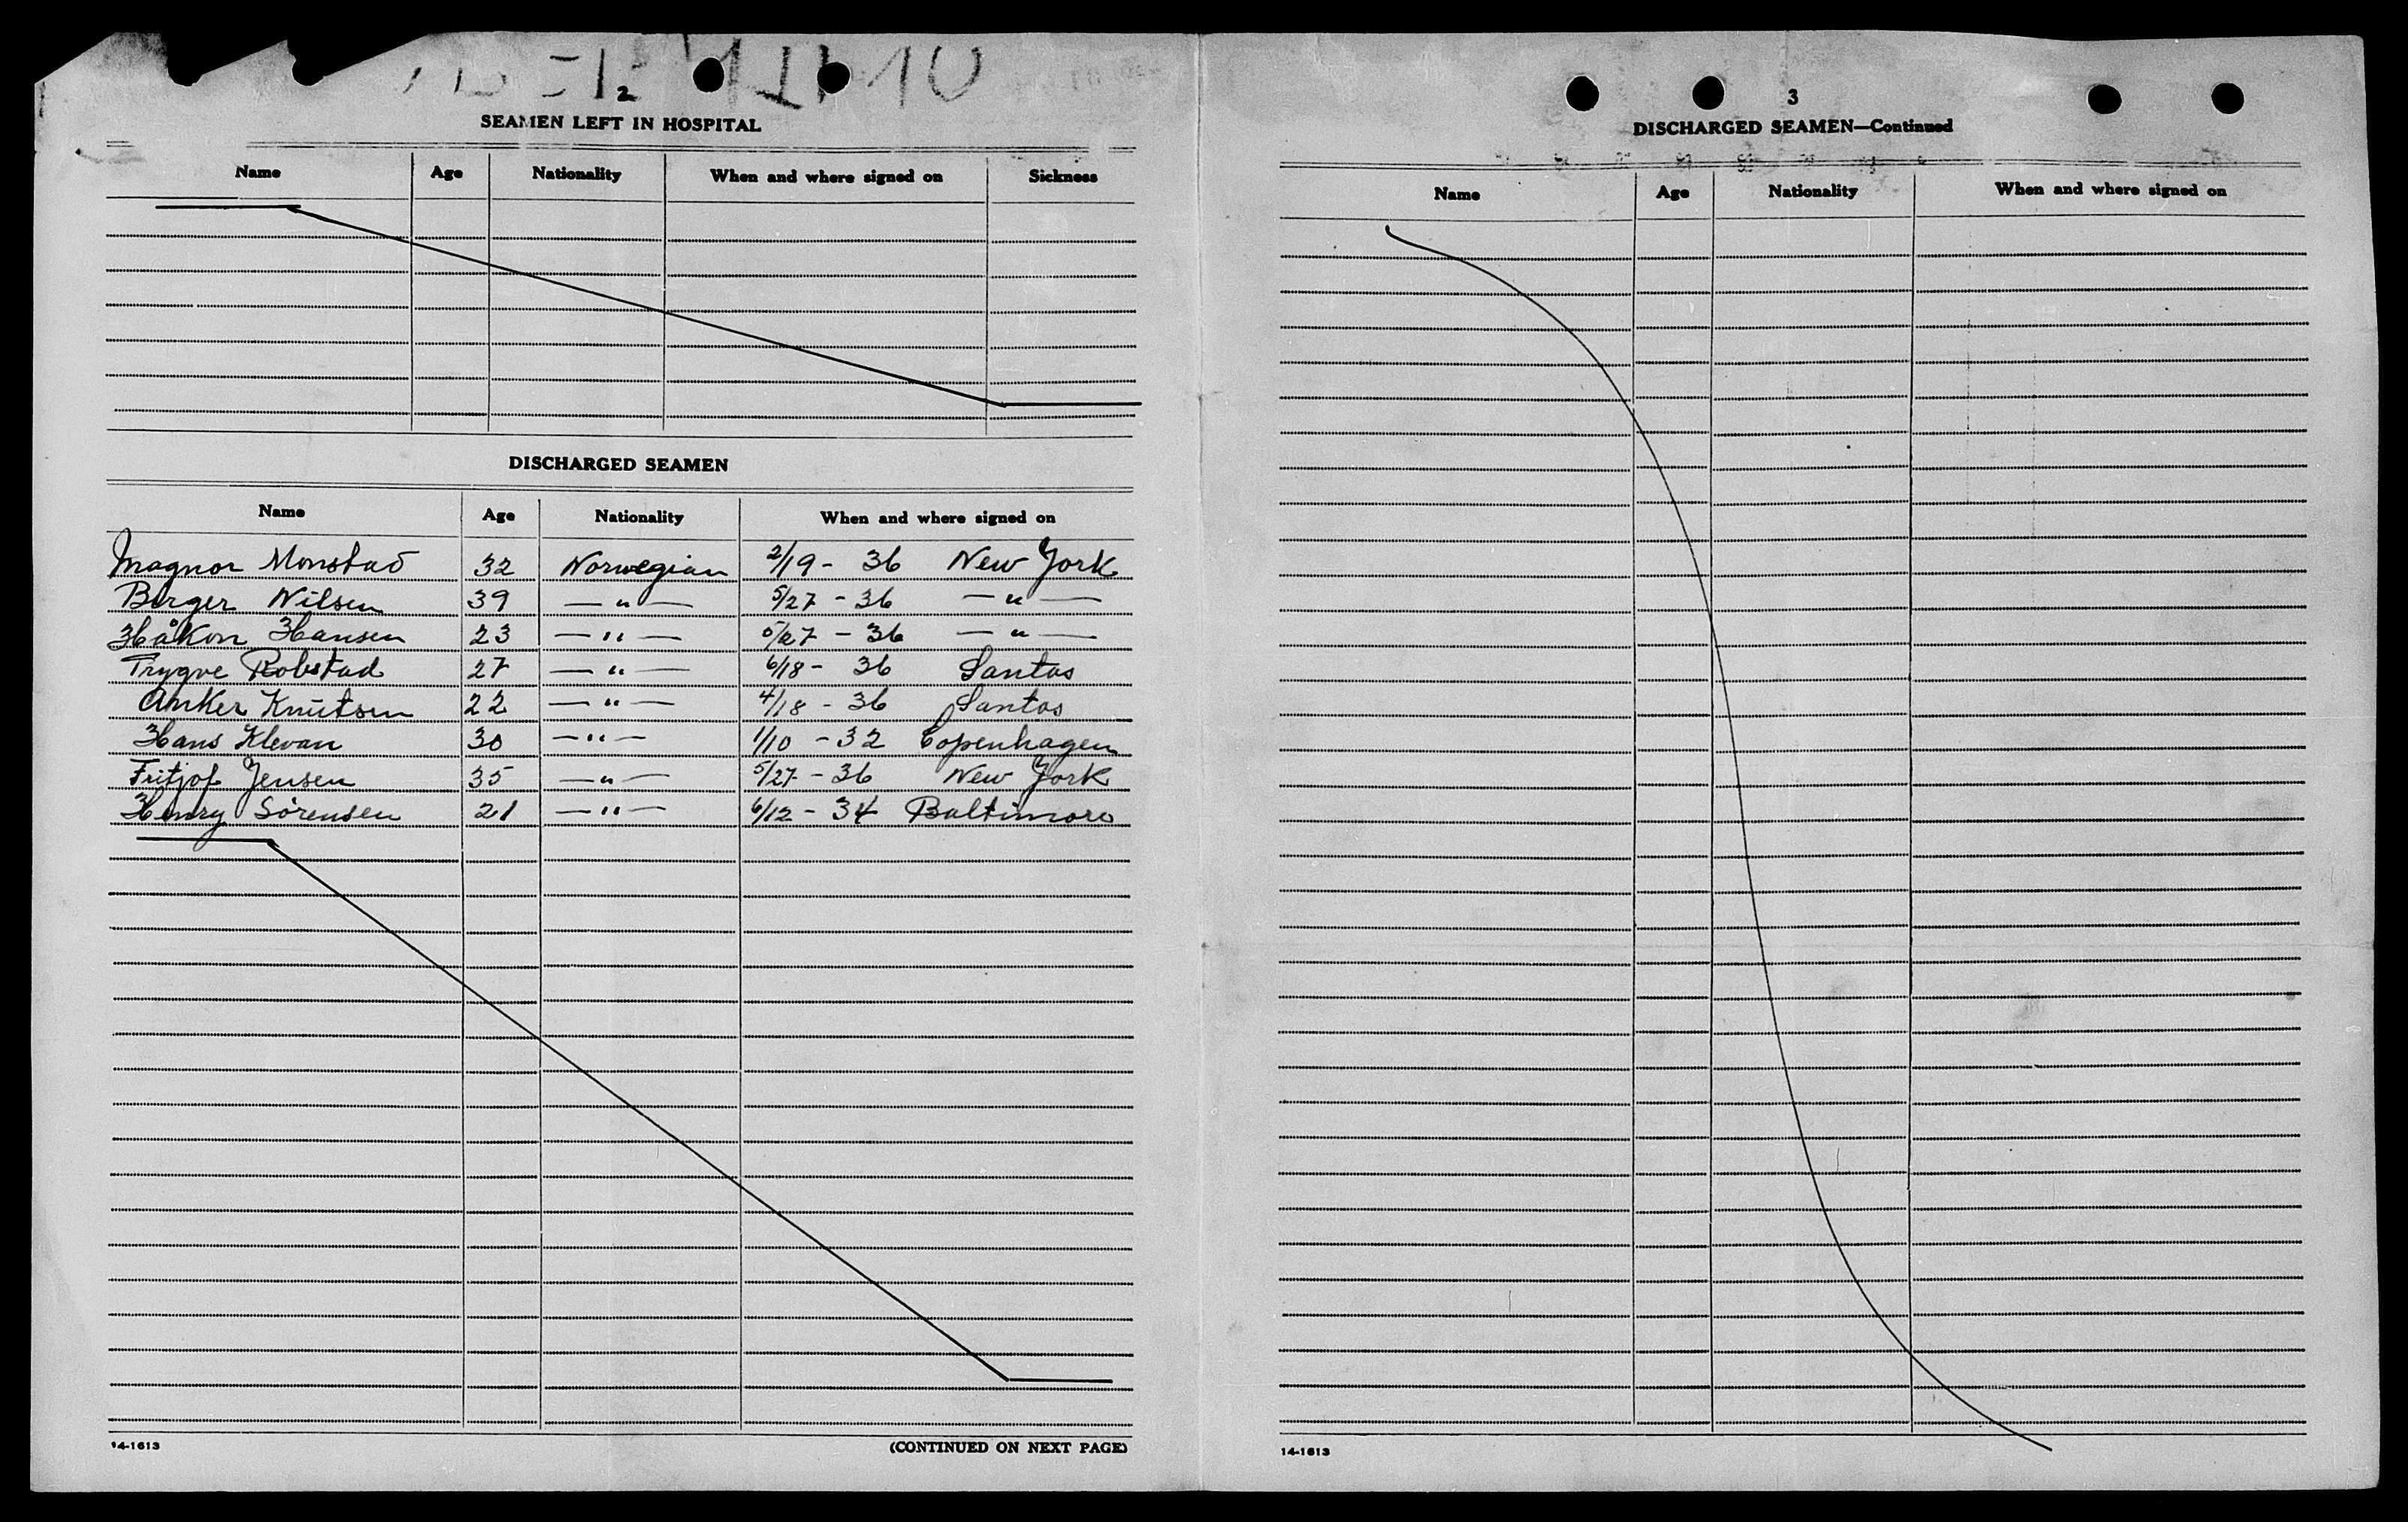 2
SEAMEN LEFT IN HOSPITAL
Name Age Nationality When and where signed on Sickness
DISCHARGED SEAMEN
Name Age Nationality When and where signed on
Magnor Monstad 32 Norwegian 2/19 - 36 New York
Birger Nilsen 39 — " — 5/27 - 36 — " —
Håkon Hansen 23 — " — 5/27 - 36 — " —
Trygve Robstad 27 — " — 6/18 - 36 Santos
Anker Knutsen 22 — " — 4/18 - 36 Santos
Hans Klevan 30 — " — 1/10 - 32 Copenhagen
Fritjof Jensen 35 — " — 5/27 - 36 New York
Henry Sörensen 21 — " — 6/12 - 34 Baltimore
14-1613 (CONTINUED ON NEXT PAGE)
3
DISCHARGED SEAMEN—Continued
Name Age Nationality When and where signed on
14-1613